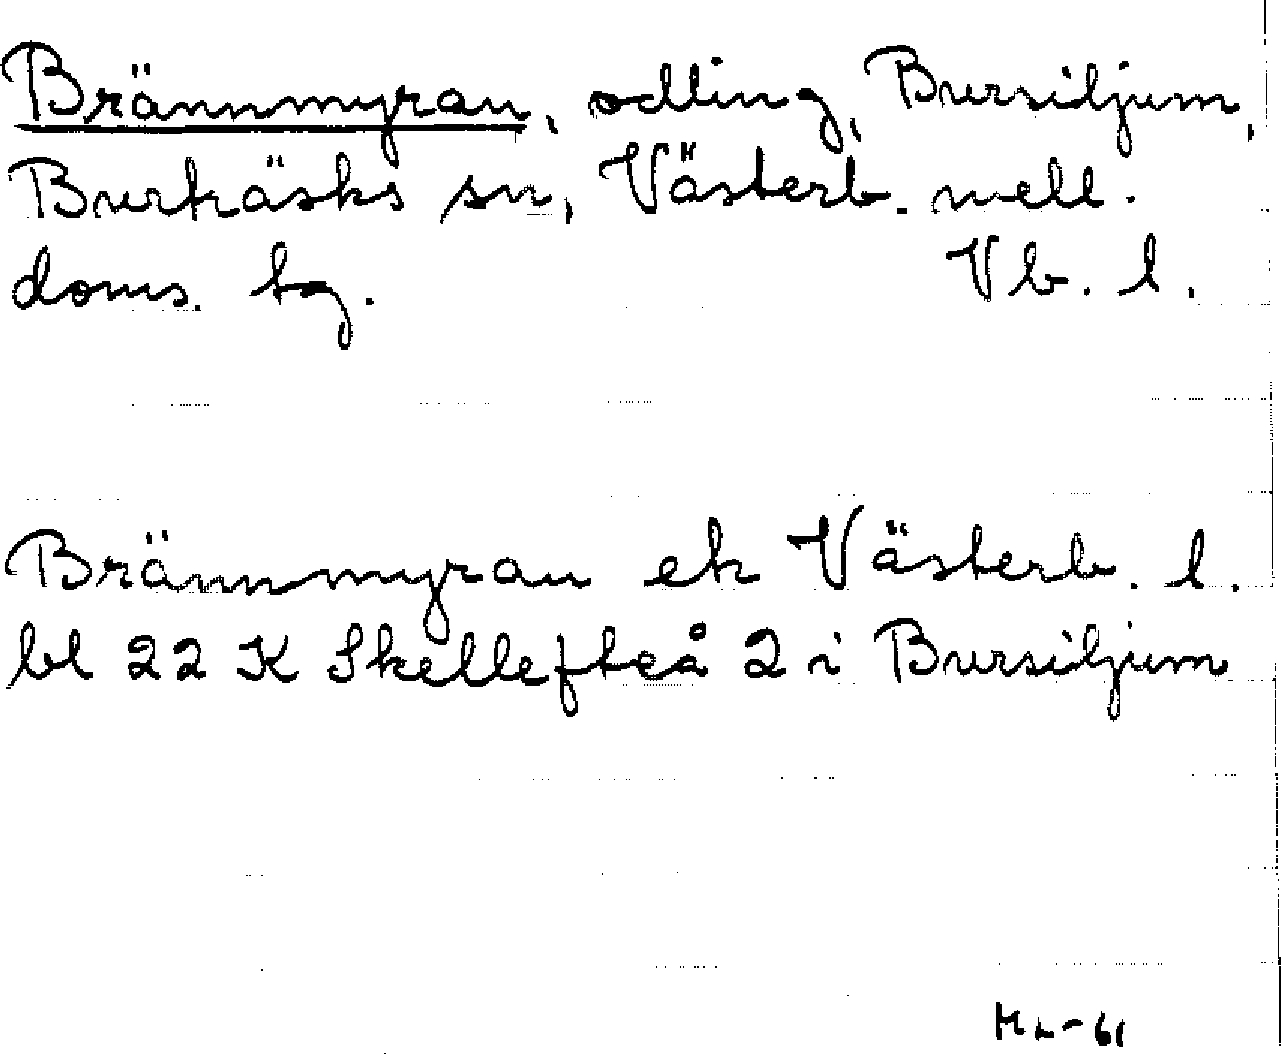 Brännmyran, odling, Bursiljum,
Burträsks sn, Västerb. mell.
doms. tg. Vb. l.
Brännmyran ek Västerb. l.
bl 22 K Skellefteå 2 i Bursiljum
HL-61